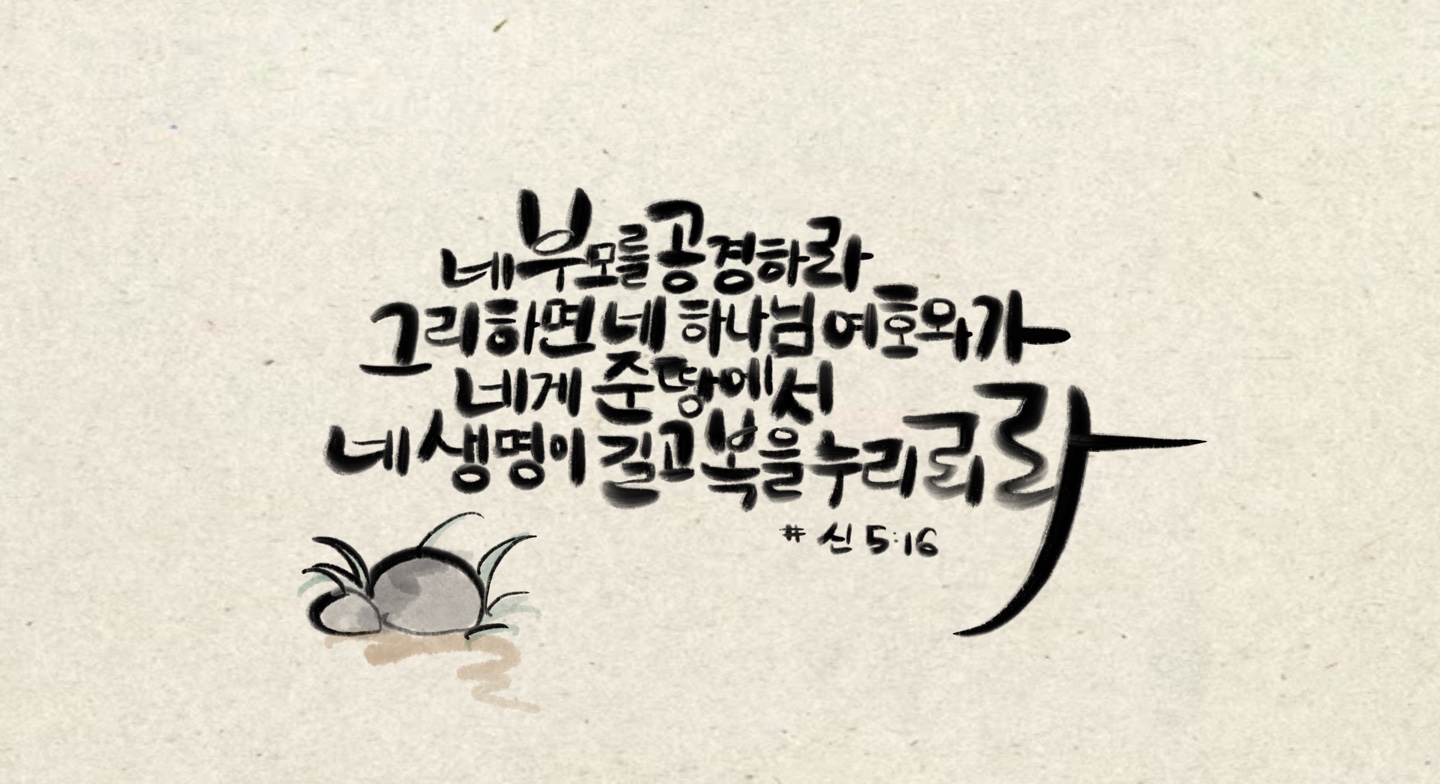 네 부모를 공경하라
그리하면 네 하나님 여호와가
네게 준 땅에서
네 생명이 길고 복을 누리리라
# 신 5:16